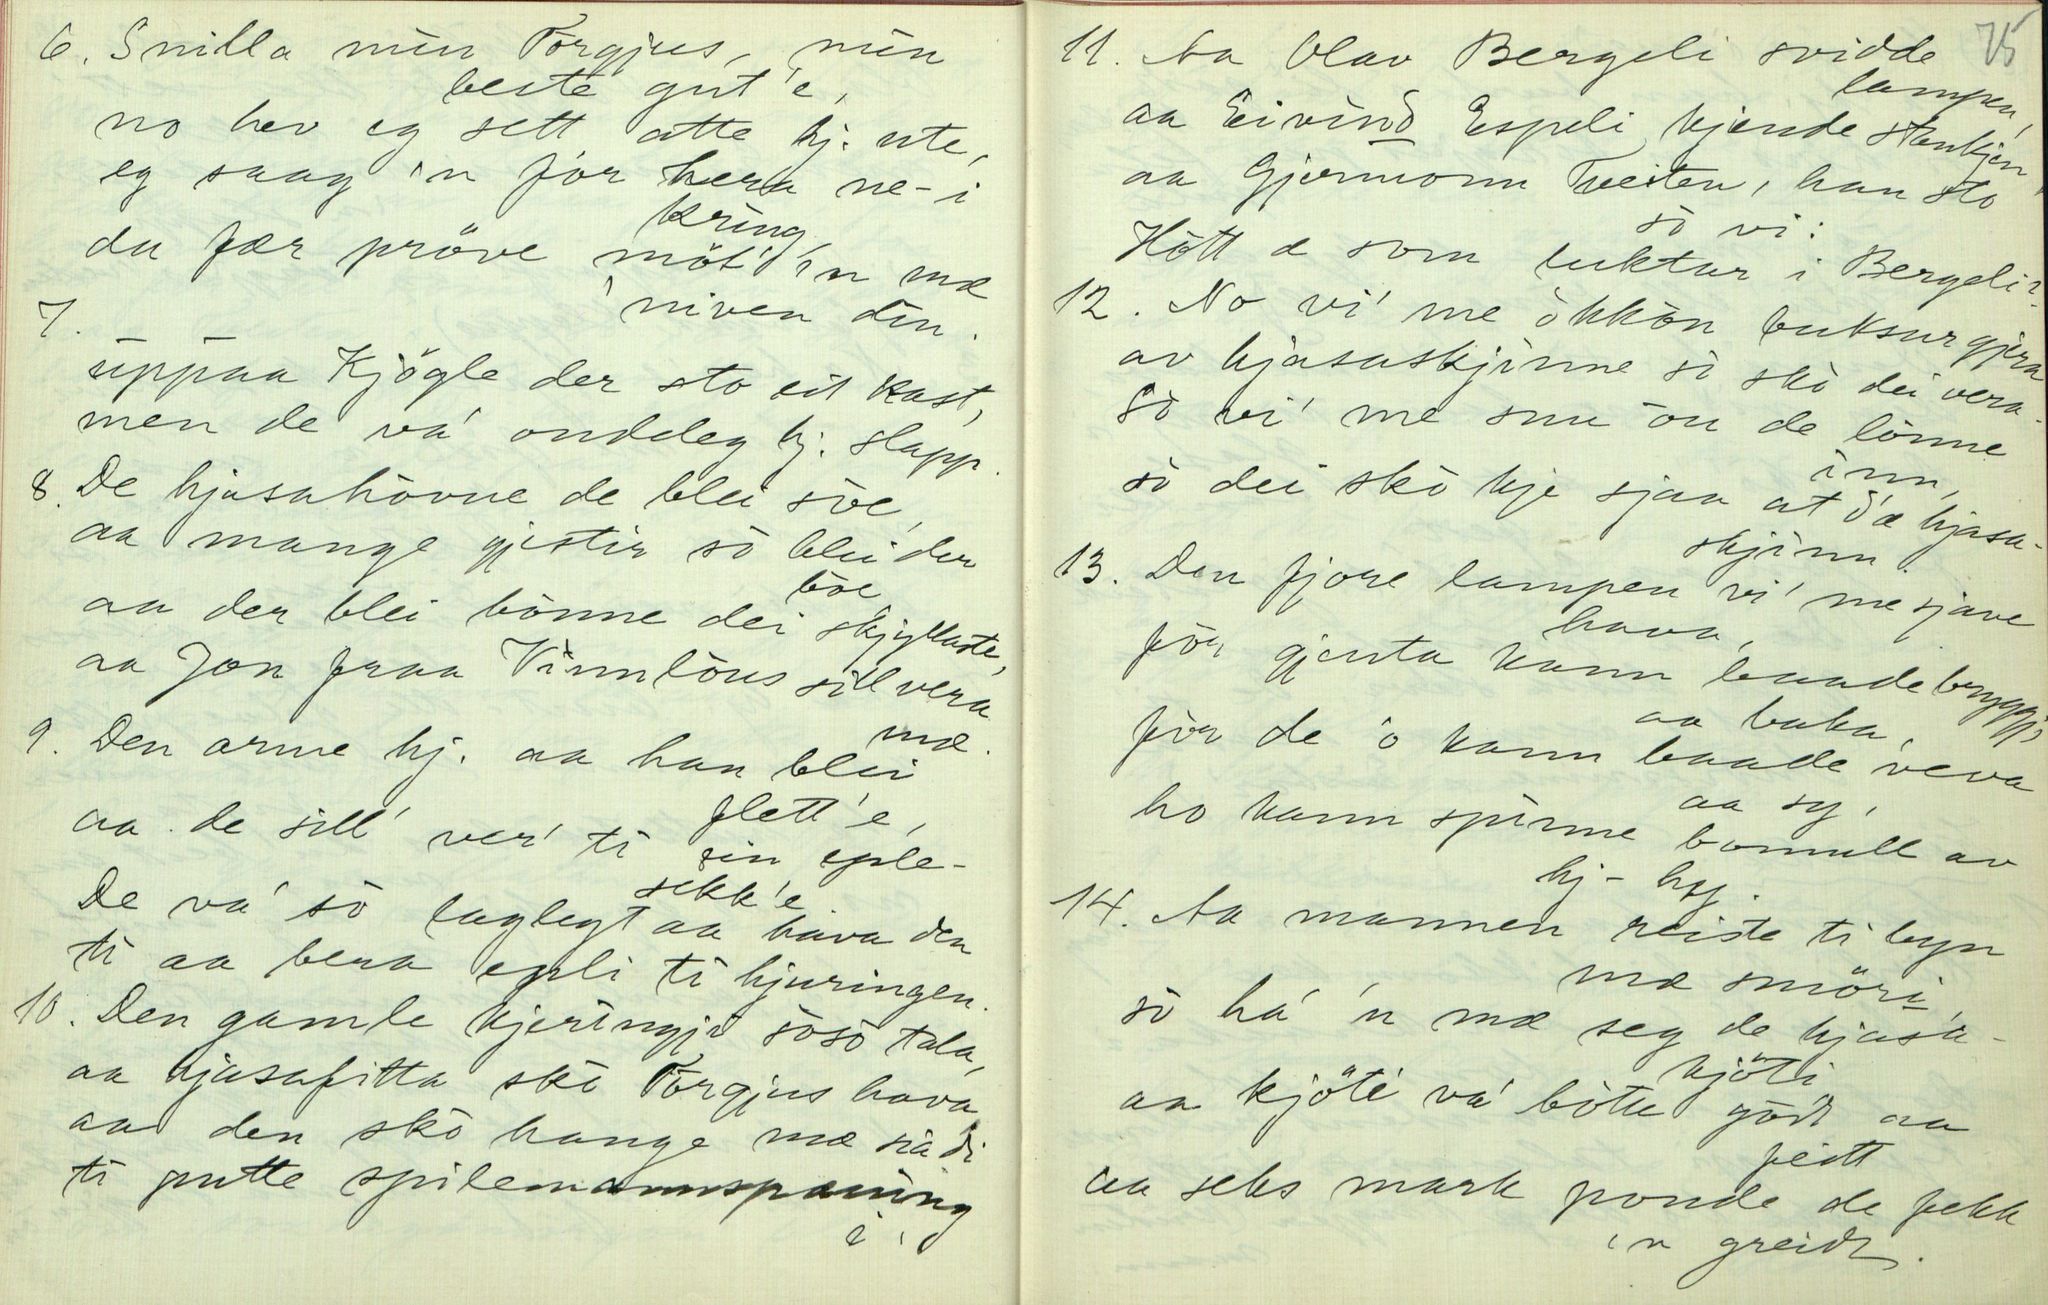 6. Snilla min Torgjus, min
beste gut'e,
no hev eg sett atte hj. ute,
eg saag 'n for hera ne-i
kring,
du fær pröve möt' 'n mæ
niven din.
7.
uppaa Kjögle der sto eit kast,
men de va' onddeg hj. slapp.
8. De hjasahòvue de blei sòe,
aa mange gjestir sò blei der
bòe
aa der blei bònne dei skjyllaste,
aa Jon fraa Vinnlöus sill vera
mæ.
9. Den arme hj. aa han blei
flett'e,
aa de sill' ver' ti ein eple-
sekk'e.
De va' sò laglegt aa hava den
ti aa bera epli ti hjuringen.
10. Den gamle kjeringji sòsò tala,
aa hjasafitta skò Torgjus hava
aa den skò hange mæ sia di
ti putte spilemannspæning
i.
75
11. Aa Olav Bergeli svidde
lampen,
aa Eivind Espeli kjende stankjen,
aa Gjermonn Tveiten, han sto
sò vi:
Hòtt æ som luktar i Bergeli?
12. No vi' me òkkòn buksur gjera
av hjasaskjinne sò skò dei vera.
Sò vi' me snu òn de lònne
inn,
sò dei skò kje sjaa at d'æ hjasa-
skjinn.
13. Den fjore lampen vi' me sjave
hava,
fòr gjenta kann baade bryggje
aa baka,
fòr de 'o kann baade veva
aa sy,
ho kann spinne bomull av
hj- hy.
14. Aa mannen reiste ti byn
mæ smöri
sò ha' 'n mæ seg de hjasa-
kjöti
aa kjöte va' bòtte godt aa
feitt
aa seks mark ponde de fekk
'n greidt.